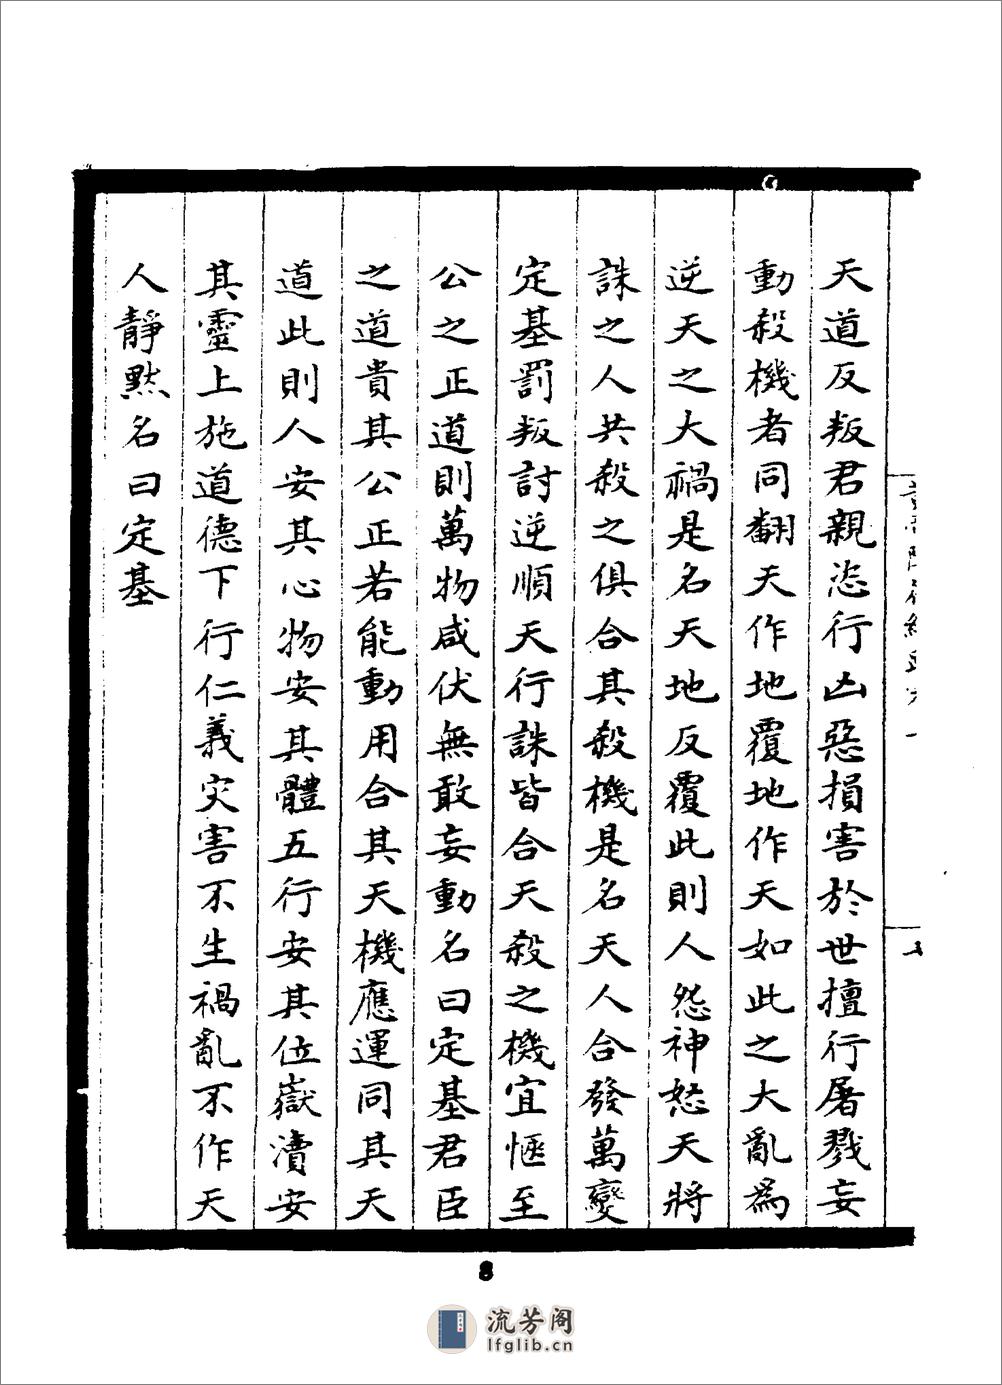 天道反叛君親恣行凶惡損害於世擅行屠戮妄
動殺機者同翻天作地覆地作天如此之大亂為
逆天之大禍是名天地反覆此則人怨神怒天將
誅之人共殺之俱合其殺機是名天人合發萬變
定基罰叛討逆順天行誅皆合天殺之機宜愜至
公之正道則萬物咸伏無敢妄動名曰定基君臣
之道貴其公正若能動用合其天機應運同其天
道此則人安其心物安其體五行安其位嶽瀆安
其靈上施道德下行仁義灾害不生禍亂不作天
人靜黙名曰定基
8
流芳阁
lfglib.cn